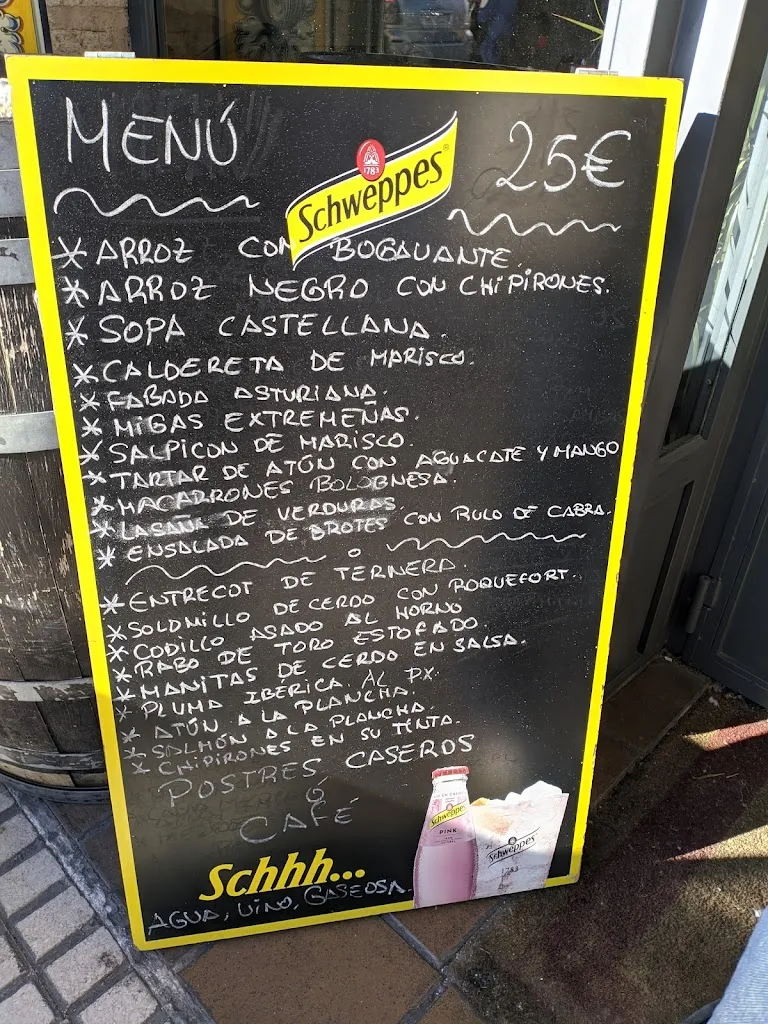 MENÚ
1783
Schweppes
25€
* ARROZ CON BOGAVANTE
* ARROZ NEGRO CON CHIPIRONES.
* SOPA CASTELLANA.
* CALDERETA DE MARISCO.
* FABADA ASTURIANA.
* MIGAS EXTREMEÑAS.
* SALPICON DE MARISCO.
* TARTAR DE ATÚN CON AGUACATE Y MANGO
* MACARRONES BOLOGNESA.
* LASAÑA DE VERDURAS.
* ENSALADA DE BROTES CON RULO DE CABRA.
* ENTRECOT DE TERNERA.
* SOLOMILLO DE CERDO CON ROQUEFORT.
* CODILLO ASADO AL HORNO
* RABO DE TORO ESTOFADO.
* MANITAS DE CERDO EN SALSA.
* PLUMA IBERICA AL P.X.
* ATÚN A LA PLANCHA.
* SALMÓN A LA PLANCHA.
* CHIPIRONES EN SU TINTA.
POSTRES CASEROS
Ó
CAFÉ
Schweppes
PINK
Schweppes
1783
Schhh...
AGUA, VINO, GASEOSA.